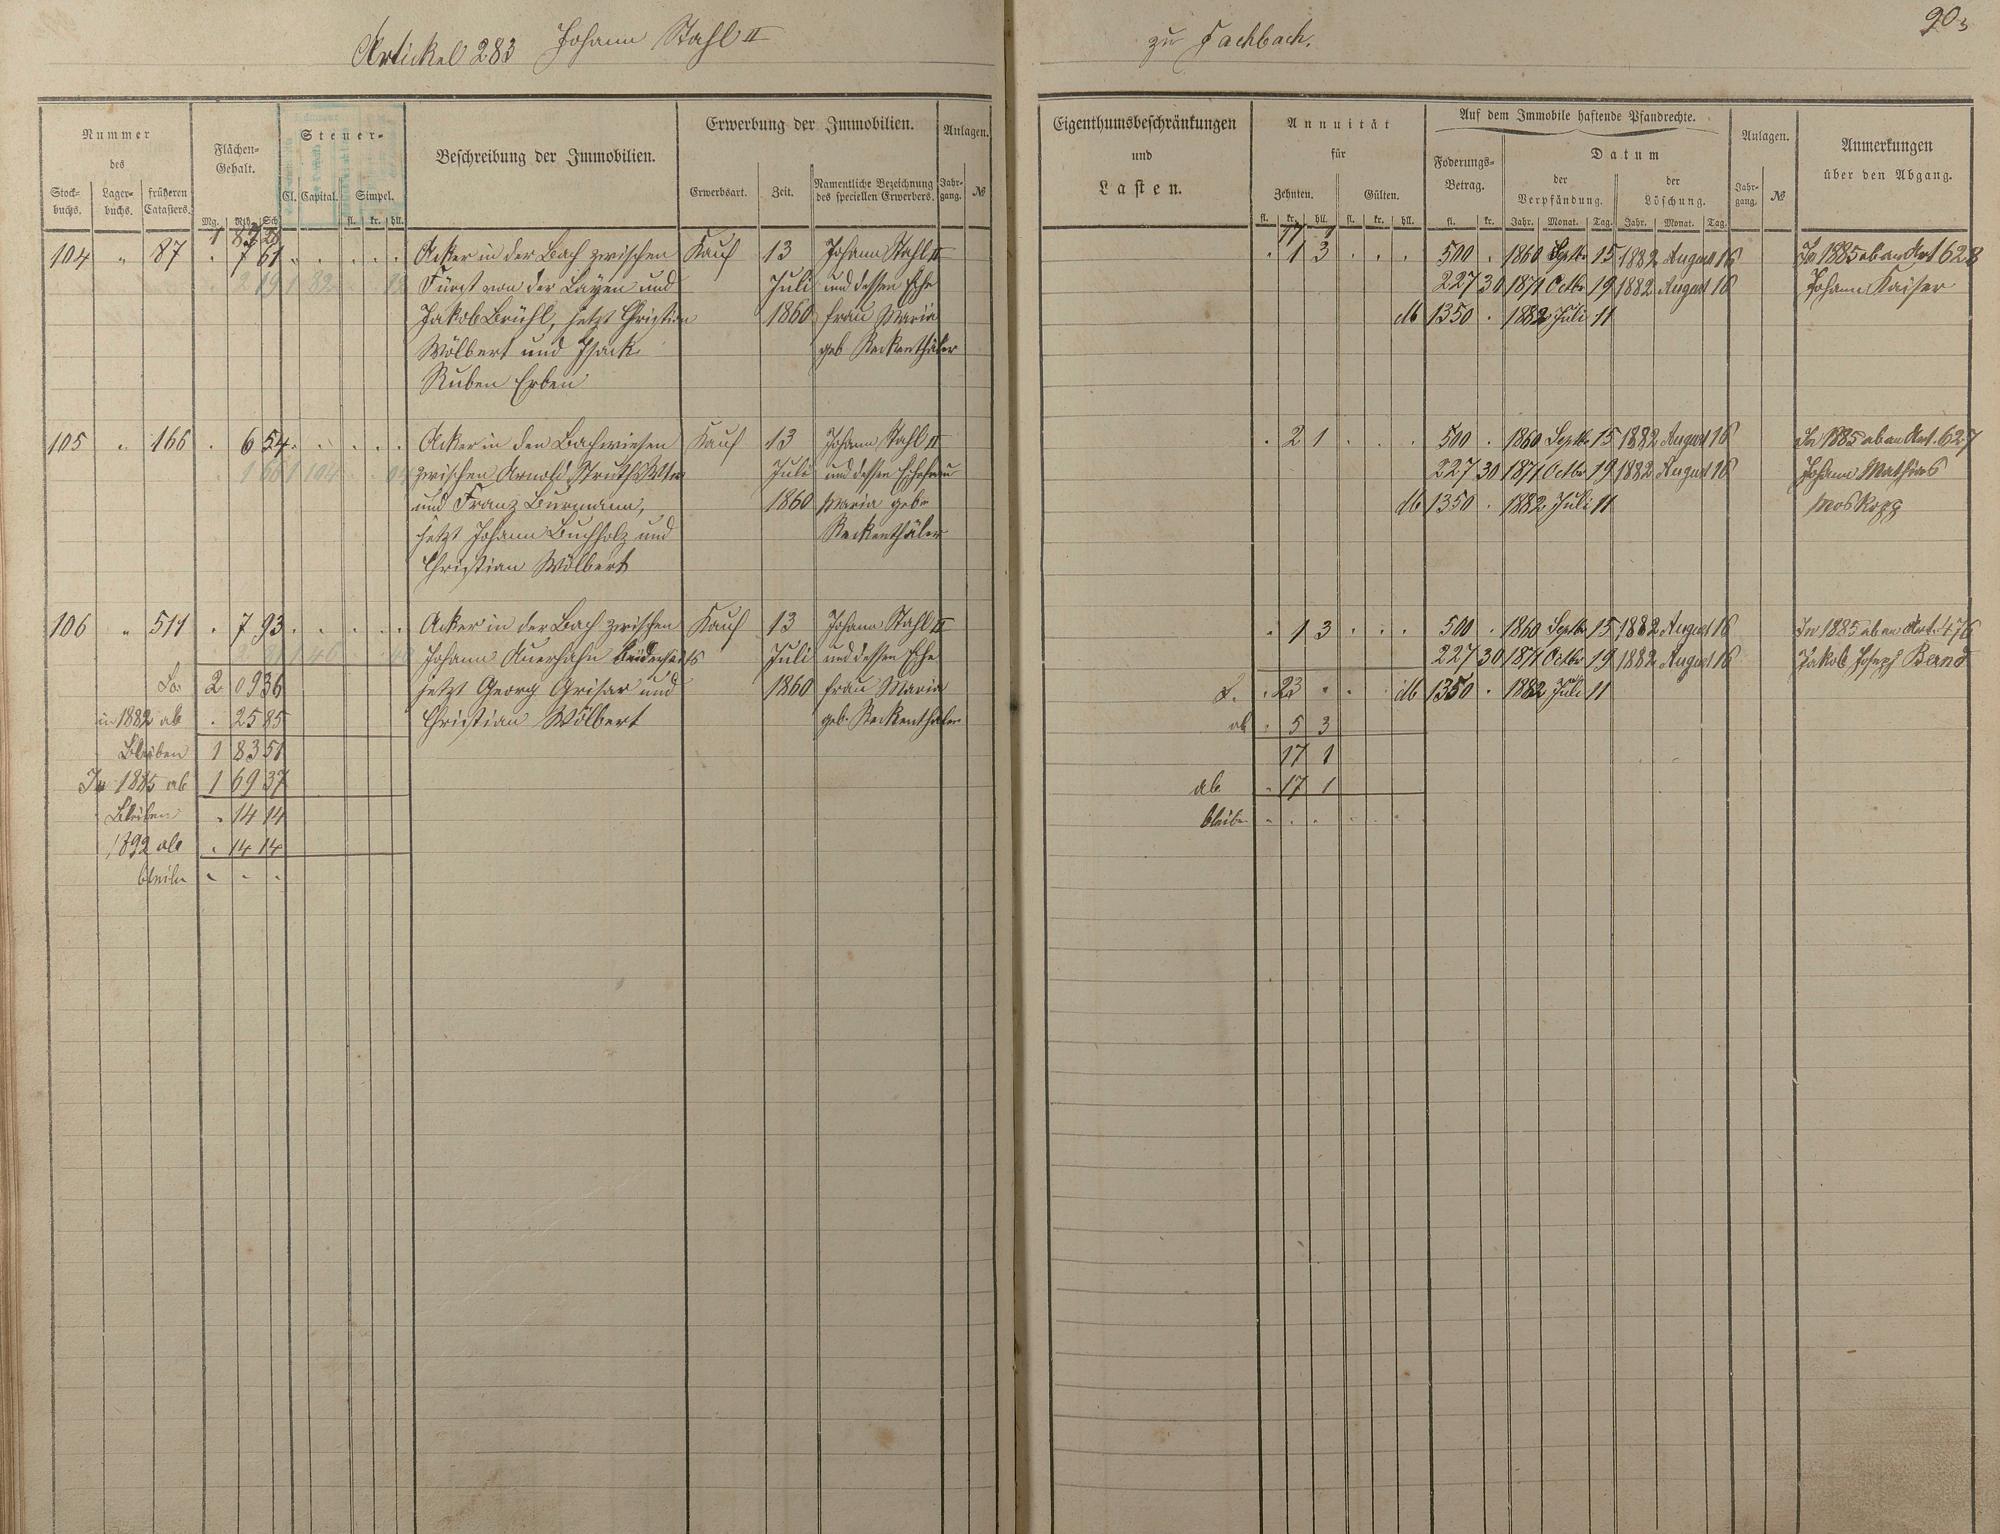 Artickel 283 Johann Stahl II zu Fachbach.
Nummer des
Stock-buchs. Lager-buchs. früheren Catasters.
Flächen-Gehalt.
Mg. Rth. Sch.
Steuer-
Cl. Capital. Simpel.
fl. kr. hll.
Beschreibung der Immobilien.
Erwerbung der Immobilien.
Erwerbsart. Zeit. Namentliche Bezeichnung des speciellen Erwerbers.
Anlagen.
Jahr-gang. №
Eigenthumsbeschränkungen
und
Lasten.
Annuität
für
Zehnten. Gülten.
fl. kr. hll. fl. kr. hll.
Auf dem Immobile haftende Pfandrechte.
Foderungs-Betrag.
fl. kr.
Datum
der Verpfändung. der Löschung.
Jahr. Monat. Tag. Jahr. Monat. Tag.
Anlagen.
Jahr-gang. №
Anmerkungen
über den Abgang.
17 1
104 " 87 . 7 61 Acker in der Bach zwischen Kauf 13 Johann Stahl II . 1 3 500 . 1860 Septbr 15 1882 August 16 In 1885 ab an Art 628
Fürst von der Layen und Juli und dessen Ehe 227 30 1871 Octbr 19 1882 August 16 Johann Kaiser
Jakob Brühl, jetzt Christian 1860 frau Maria M 1350 . 1882 Juli 11
Wölbert und Isack geb Reckenthäler
Ruben Erben
105 " 166 . 6 54 Acker in den Bachwiesen Kauf 13 Johann Stahl II . 2 1 500 . 1860 Septbr 15 1882 August 16 In 1885 ab an Art. 627
zwischen Arnold Struths Wtw Juli und dessen Ehefrau 227 30 1871 Octbr 19 1882 August 16 Johann Mathias
und Franz Burmann, 1860 Maria geb M 1350 . 1882 Juli 11
jetzt Johann Buchholz und Reckenthäler
Christian Wölbert
106 " 511 . 7 93 Acker in der Bach zwischen Kauf 13 Johann Stahl II . 1 3 500 . 1860 Septbr 15 1882 August 16 In 1885 ab an Art. 476
Johann Auerhahn beiderseits Juli und dessen Ehe 227 30 1871 Octbr 19 1882 August 16 Jakob Joseph Bernd
Sa. 2 09 36 jetzt Georg Grisar und 1860 frau Maria S. . 23 . M 1350 . 1882 Juli 11
in 1882 ab . 25 85 Christian Wölbert geb. Reckenthäler ab . 5 3
Bleiben 1 83 51 17 1
In 1885 ab 1 69 37 ab . 17 1
Bleiben . 14 14 bleibe . . .
1892 ab . 14 14
bleibe . . .